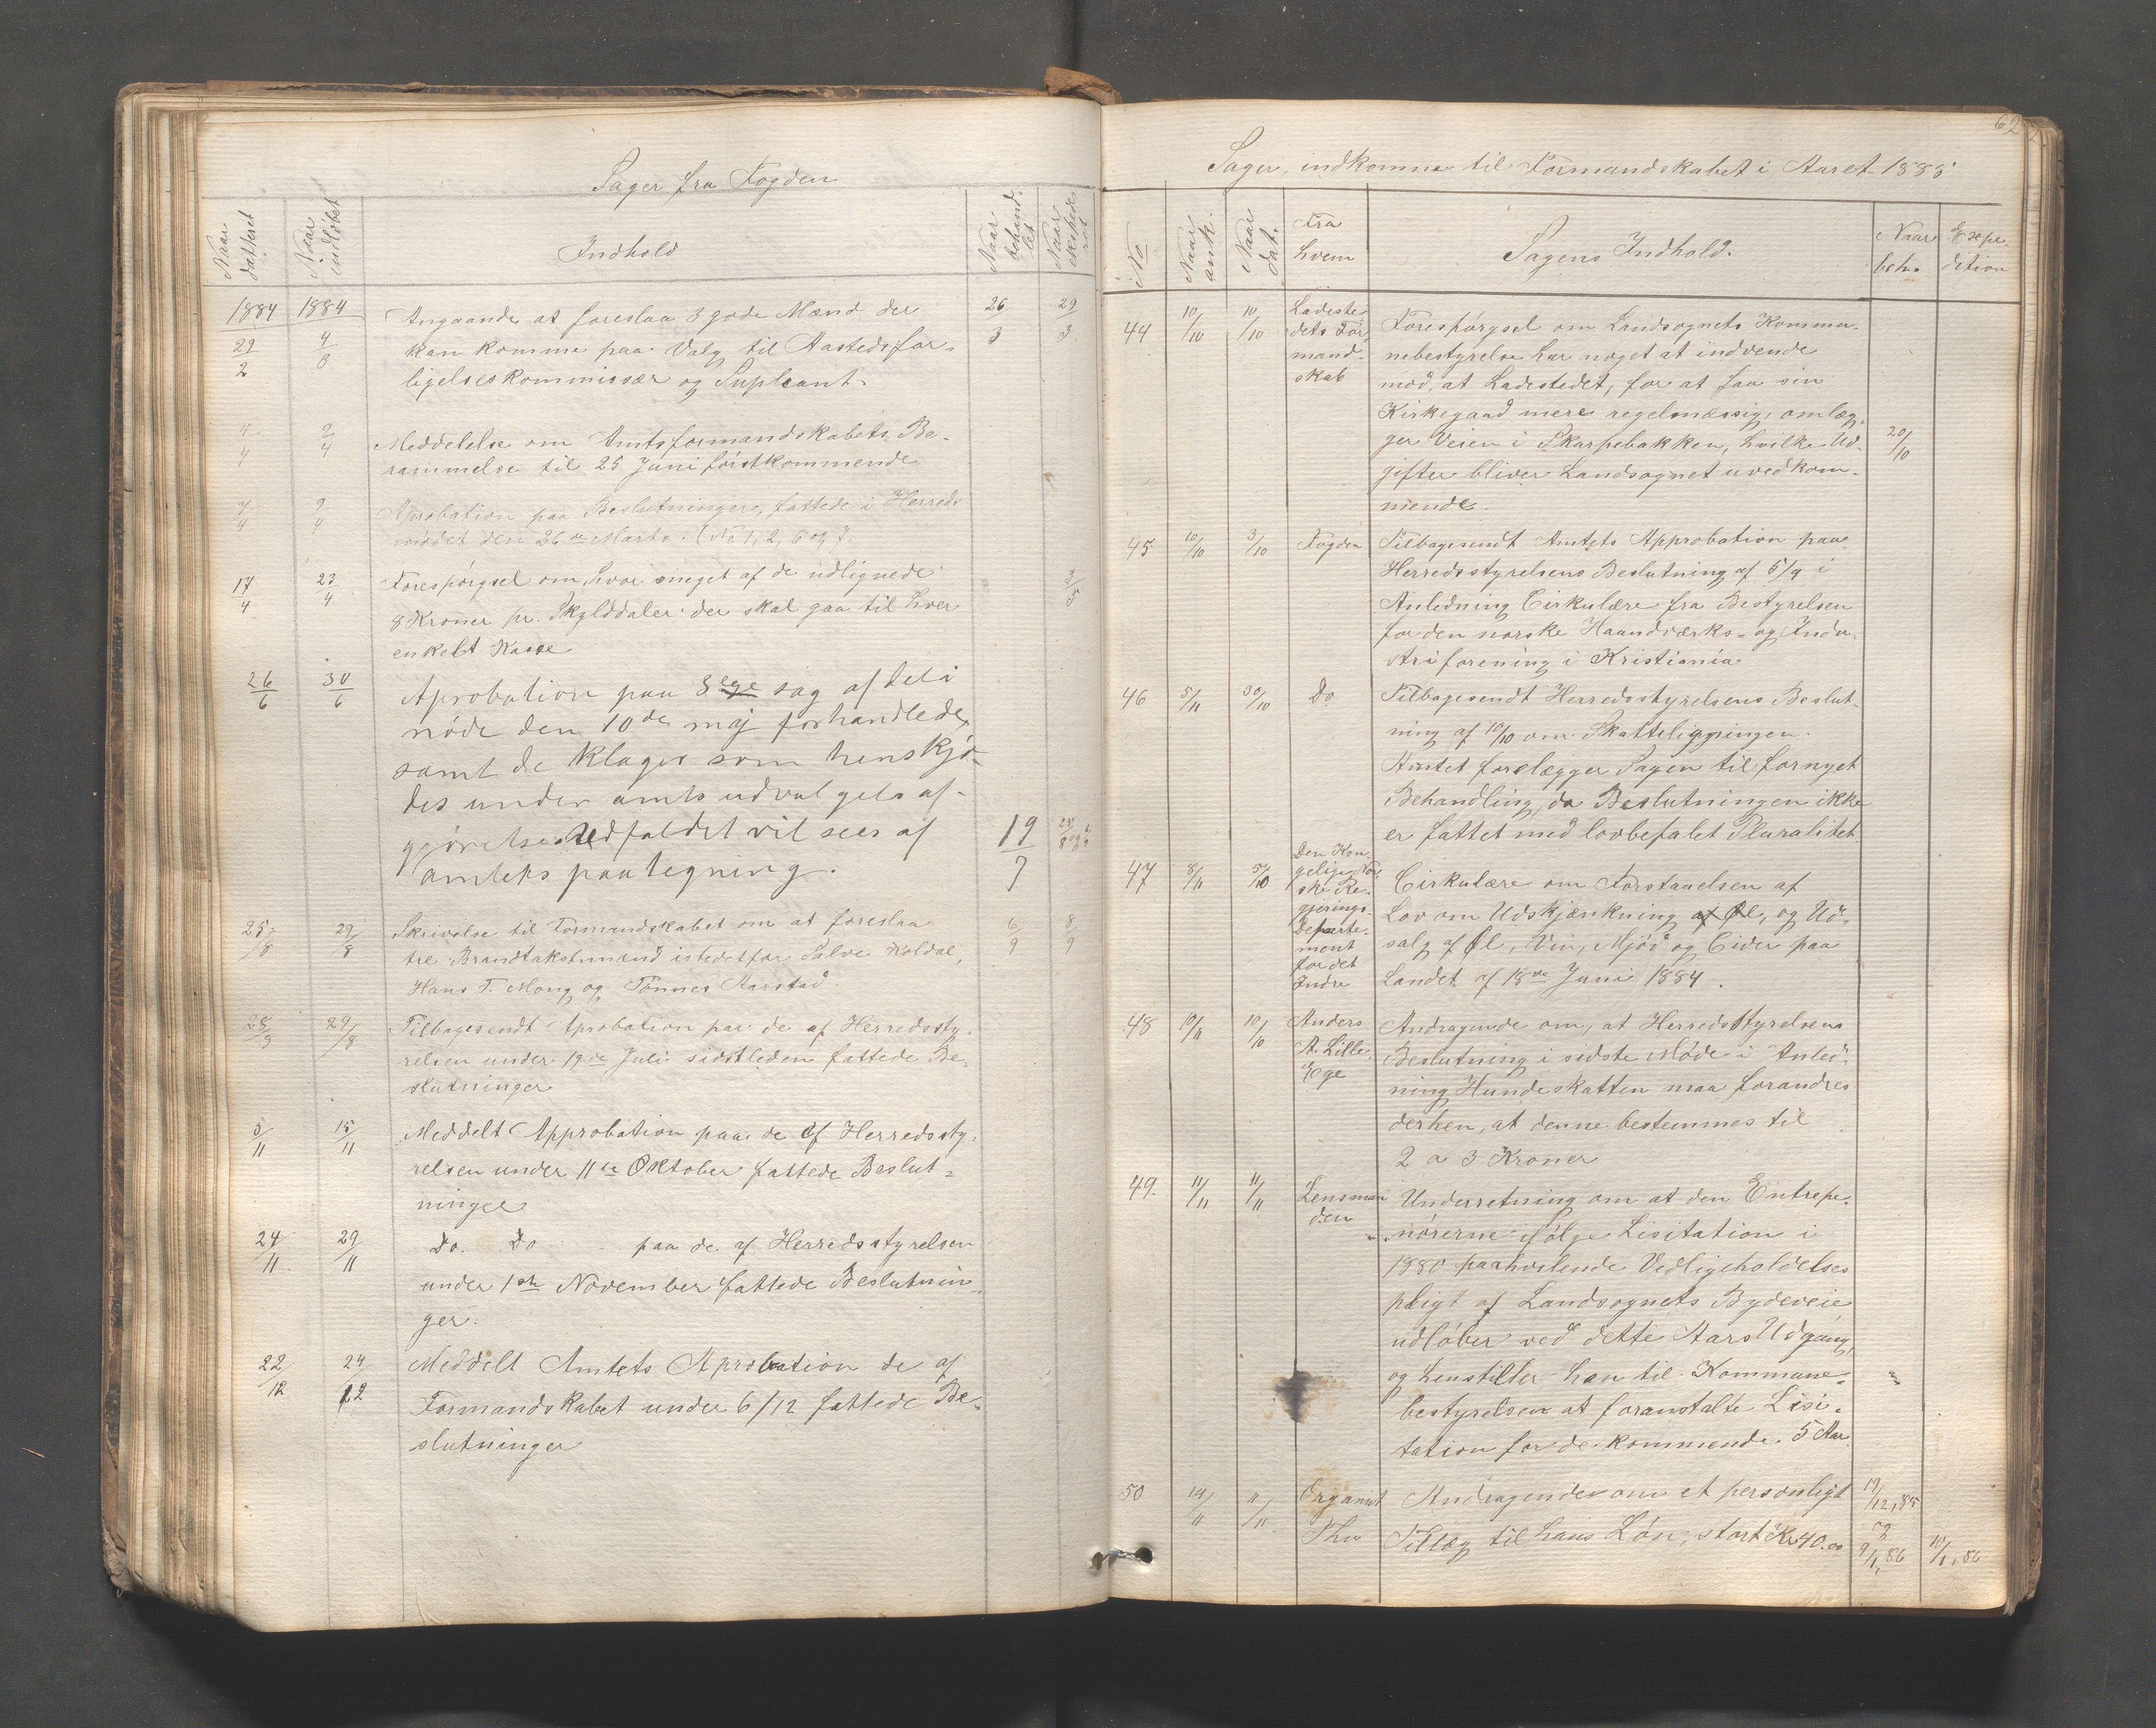 Sager fra Fogden
Naar datteret
Naar indløbet
Indhold
Naar behandlet
Naar ekspederet
1884 1884
29/2 4/3 Angaaende at foreslaa 3 gode Mænd der 26/3 29/3
kan komme paa Valg til Aastedsfor-
ligelseskommissær og Supleant.
4/4 9/4 Meddelelse om Amtsformandskabets Be-
rammelse til 25 Juni førstkommende
4/4 9/4 Aprobation paa Beslutninger, fattede i Herreds
mødet den 26de Marts. (No 1, 2, 6 og 7.
17/4 23/4 Forespørgsel om, hvor meget af de udlignede 3/5
8 Kroner pr. Skylddaler der skal gaa til hver
enkelt Kasse
26/6 30/6 Aprobation paa 3 sag af det i
møde den 10de maj forhandlede,
samt de klager som henskjø-
des under amts udvalgets af-
gjørelse. Udfaldet vil sees af 19/7
amtets paategning.
25/8 29/8 Skrivelse til Formandskabet om at foreslaa 6/9 8/9
tre Brandtakstmænd istedetfor Salve Koldal,
Hans T. Mong og Tønnes Aarstad.
28/8 29/8 Tilbagesendt Aprobation paa de af Herredssty-
relsen under 19de Juli sidstleden fattede Be-
slutninger
5/11 15/11 Meddelt Approbation paa de af Herredssty-
relsen under 11te Oktober fattede Beslut-
ninger
24/11 29/11 Do. Do paa de af Herredsstyrelsen
under 1ste November fattede Beslutnin-
ger.
22/12 24/12 Meddelt Amtets Aprobation de af
Formandskabet under 6/12 fattede Be-
slutninger
62
Sager, indkomne til Formandskabet i Aaret 1885
No
Naar ank.
Naar dat.
Fra hvem
Sagens Indhold.
Naar beh.
Expedition
44 10/10 10/10 Ladeste- Forespørgsel om Landsognets Kommu-
dets For- nebestyrelse har noget at indvende
mand- mod, at Ladestedet, for at faa sin
skab Kirkegaard mere regelmæssig, omlæg-
ger Veien i Skarpebakken, hvilke Ud- 20/10
gifter bliver Landsognet uvedkom-
mende.
45 10/10 3/10 Fogden Tilbagesendt Amtets Approbation paa
Herredsstyrelsens Beslutning af 5/9 i
Anledning Cirkulære fra Bestyrelsen
for den norske Haandværks- og Indu-
striforening i Kristiania
46 5/11 30/10 Do Tilbagesendt Herredsstyrelsens Beslut-
ning af 10/10 om Skatteligningen.
Amtet forelægger Sagen til fornyet
Behandling, da Beslutningen ikke
er fattet med lovbefalet Pluralitet.
47 8/11 5/10 Den Kon-
gelige Nor- Cirkulære om Forstaaelsen af
ske Re-
gjerings- Lov om Udskjænkning af Øl, og Ud-
Departe-
ment salg af Øl, Vin, Mjød og Cider paa
for det
Indre Landet af 18de Juni 1884.
48 10/11 10/10 Anders Andragende om, at Herredsstyrelsens
A. Lille Beslutning i sidste Møde i Anled-
Ege ning Hundeskatten maa forandres
derhen, at denne bestemmes til
2 a 3 Kroner
49. 11/11 11/11 Lensman Underretning om at den Entrepe-
den nørerne ifølge Lisitation i
1880 paahvilende Vedligeholdelses
pligt af Landsognets Bydeveie
udløber ved dette Aars Udgang,
og henstiller han til Kommune-
bestyrelsen at foranstalte Lisi-
tation for de kommende 5 Aar
50 14/11 11/11 Organist Andragende om et personligt 19/12,85
Thu Tillæg til hans Løn, stort Kr 40.00 og 9/1,86 10/1,86